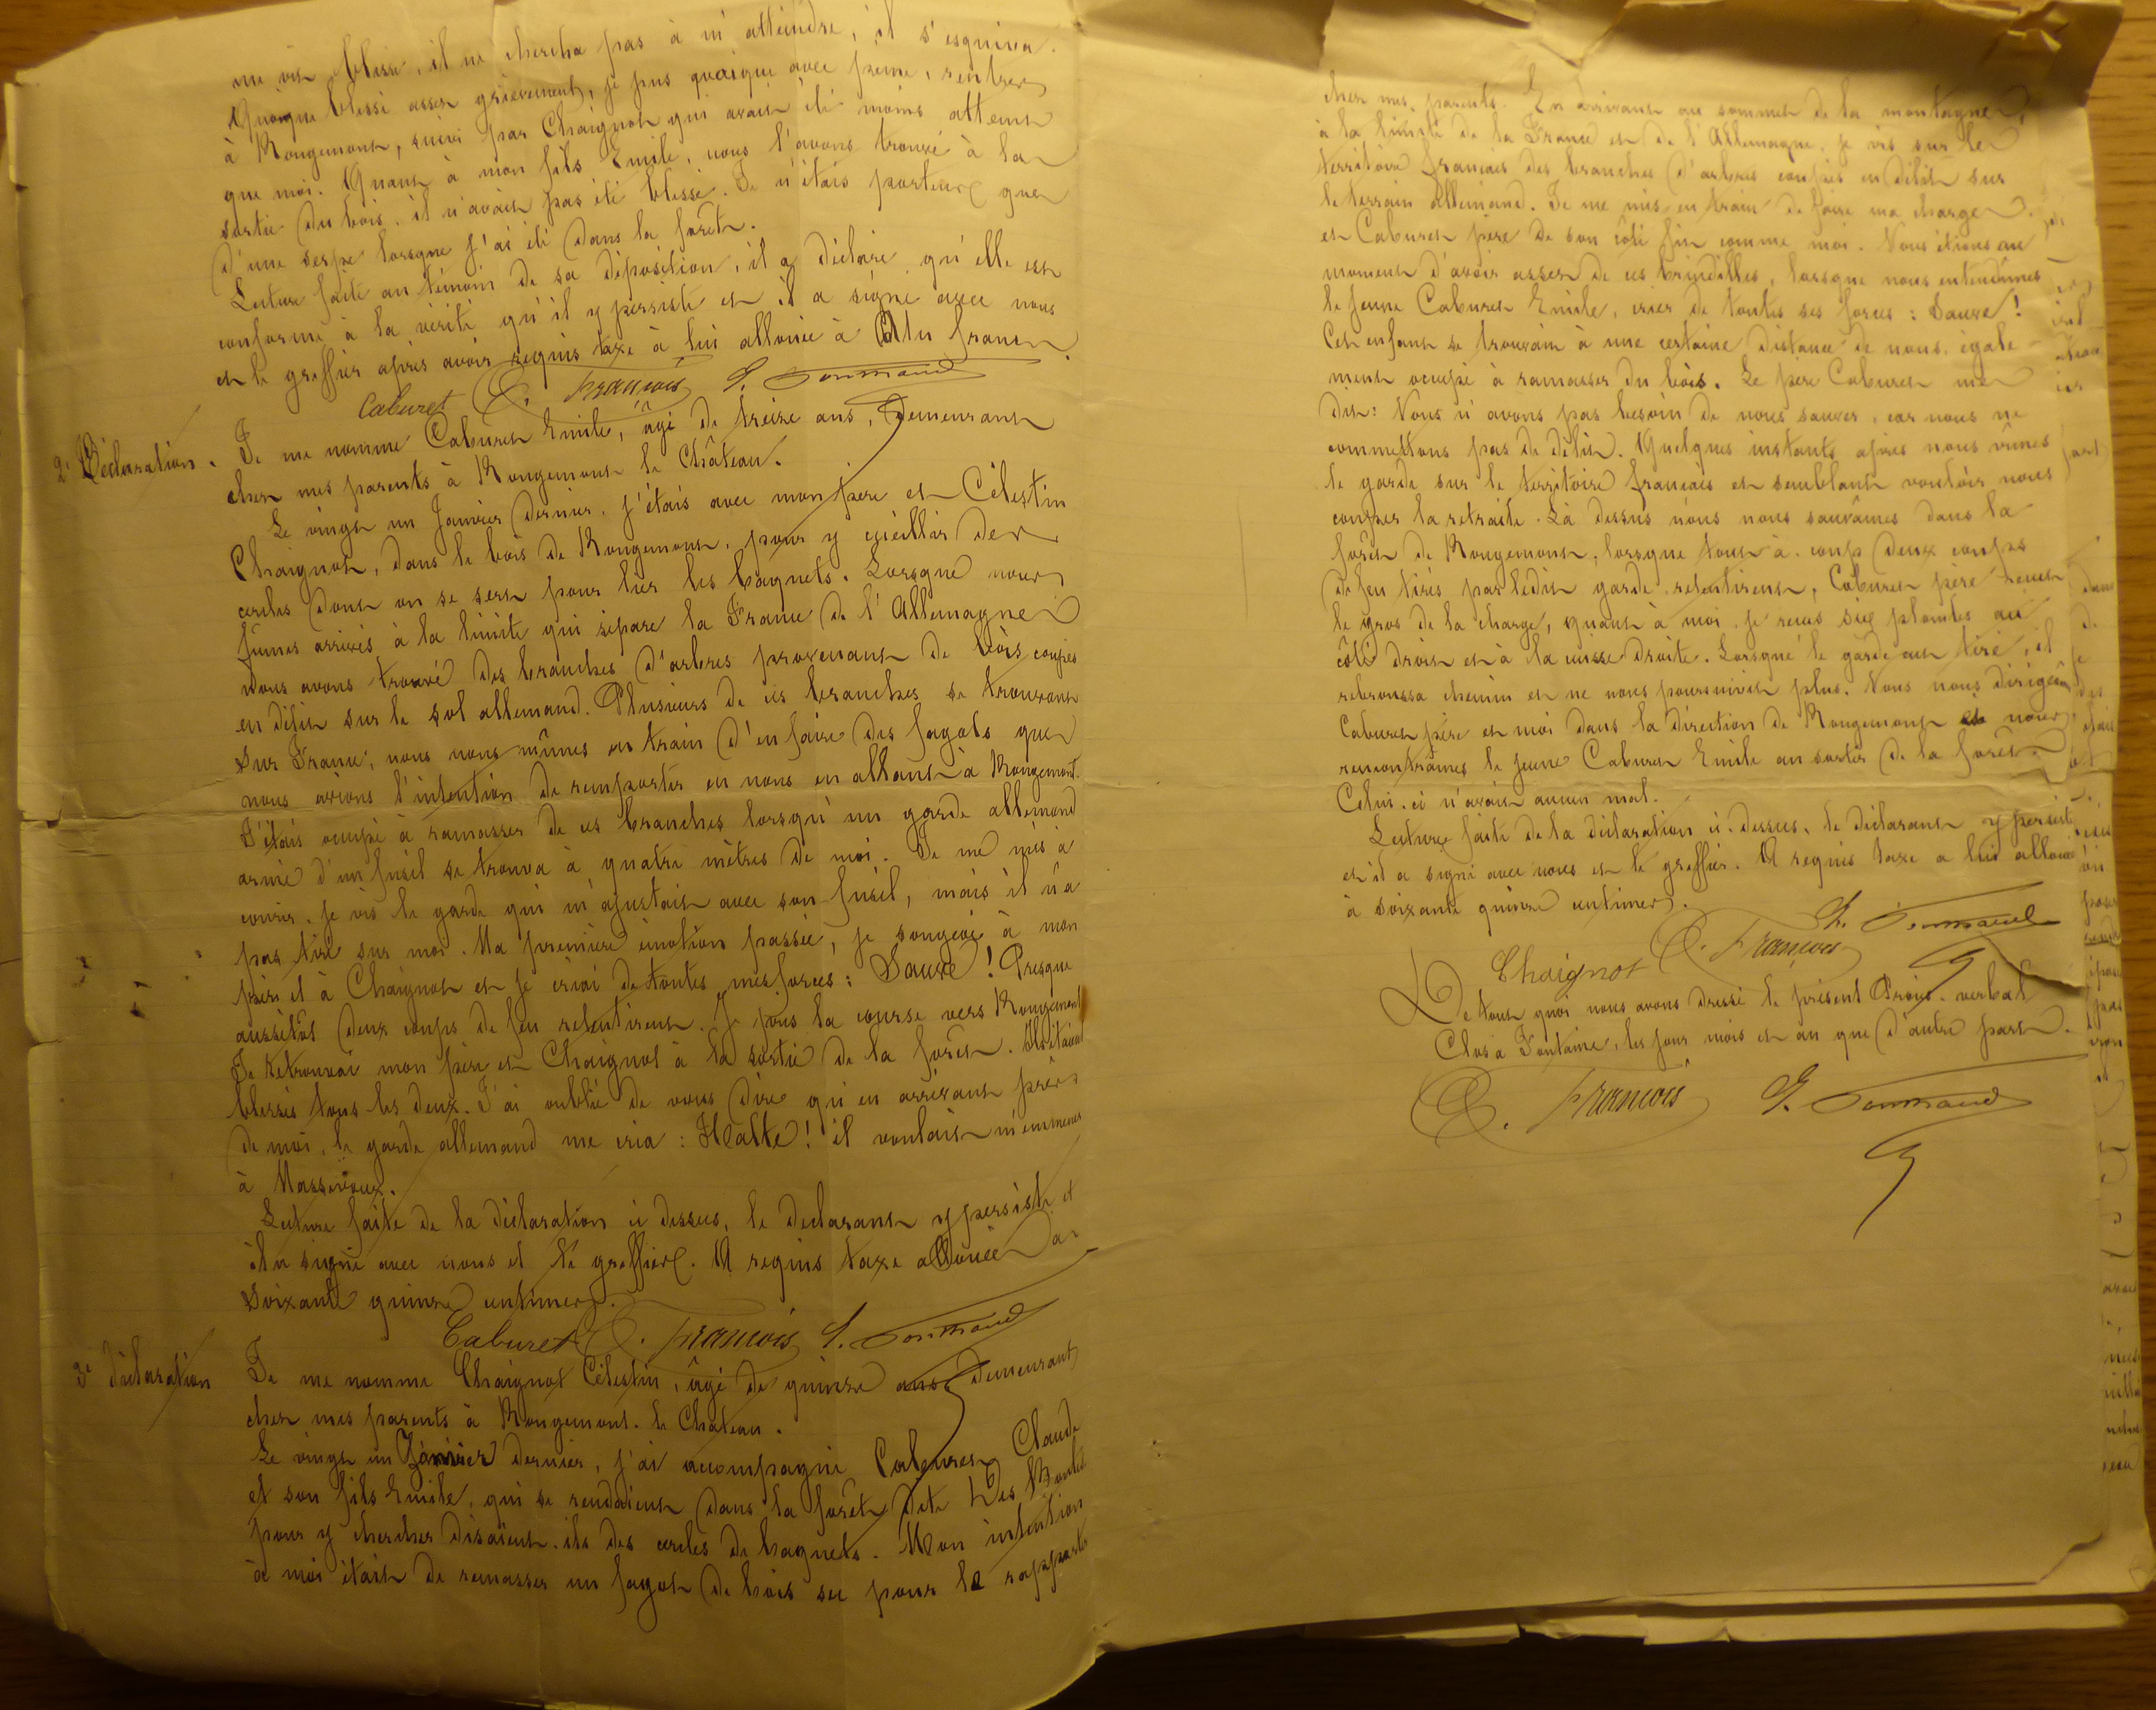 me vit blessé, il ne chercha pas à m'atteindre, il s'esquiva.
Quoique blessé assez grièvement, je pus quoique avec peine, rentrer
à Rougemont, suivi par Chaignot qui avait été moins atteint
que moi. Quant à mon fils Emile, nous l'avons trouvé à la
sortie du bois, il n'avait pas été blessé. Je n'étais porteur que
d'une serpe lorsque j'ai été dans la forêt.
Lecture faite au témoin de sa déposition, il a déclaré qu'elle est
conforme à la vérité qu'il y persiste et il a signé avec nous
et le greffier après avoir requis taxe à lui allouée à Un franc.
Caburet C. François
2e Déclaration. Je me nomme Caburet Emile, âgé de treize ans, demeurant
chez mes parents à Rougemont le Château.
Le vingt un Janvier dernier, j'étais avec mon père et Célestin
Chaignot, dans le bois de Rougemont, pour y cueillir des
cercles dont on se sert pour lier les bagnets. Lorsque nous
fûmes arrivés à la limite qui sépare la France de l'Allemagne
nous avons trouvé des branches d'arbres provenant de bois coupés
en délit sur le sol allemand. Plusieurs de ces branches se trouvant
sur France, nous nous mîmes en train d'en faire des fagots que
nous avions l'intention de remporter en nous en allant à Rougemont.
J'étais occupé à ramasser de ces branches lorsqu'un garde allemand
armé d'un fusil se trouva à quatre mètres de moi. Je me mis à
courir. Je vis le garde qui m'ajustait avec son fusil, mais il n'a
pas tiré sur moi. Ma première émotion passée, je songeai à mon
père et à Chaignot et je criai de toutes mes forces : Sauve ! Presque
aussitôt deux coups de feu retentirent. Je pris la course vers Rougemont
Je retrouvai mon père et Chaignot à la sortie de la forêt. Ils étaient
blessés tous les deux. J'ai oublié de vous dire qu'en arrivant près
de moi, le garde allemand me cria : Halte ! il voulait m'emmener
à Massevaux.
Lecture faite de la déclaration ci dessus, le déclarant y persiste et
il a signé avec nous et le greffier. A requis taxe allouée à
soixante quinze centimes.
Caburet C. François
3e déclaration Je me nomme Chaignot Célestin, âgé de quinze ans demeurant
chez mes parents à Rougemont-le Château.
Le vingt un Janvier dernier, j'ai accompagné Caburet Claude
et son fils Emile, qui se rendaient dans la forêt dite Des
pour y chercher disaient-ils des cercles de bagnets. Mon intention
à moi était de ramasser un fagot de bois sec pour le rapporter
chez mes parents. En arrivant au sommet de la montagne,
à la limite de la France et de l'Allemagne, je vis sur le
territoire français des branches d'arbres coupés en délit sur
le terrain allemand. Je me mis en train de faire ma charge
et Caburet père de son côté fit comme moi. Nous étions au
moment d'avoir assez de ces brindilles, lorsque nous entendîmes
le jeune Caburet Emile, crier de toutes ses forces : Sauve !
Cet enfant se trouvait à une certaine distance de nous, égale-
ment occupé à ramasser du bois. Le père Caburet me
dit : Nous n'avons pas besoin de nous sauver, car nous ne
commettons pas de délit. Quelques instants après nous vîmes
le garde sur le territoire français et semblant vouloir nous
couper la retraite. Là dessus nous nous sauvâmes dans la
forêt de Rougemont, lorsque tout à coup deux coups
de feu tirés par ledit garde retentirent, Caburet père reçut
le gros de la charge, quant à moi, je reçus six plombs au
côté droit et à la cuisse droite. Lorsque le garde eut tiré, il
rebroussa chemin et ne nous poursuivit plus. Nous nous dirigeâmes
Caburet père et moi dans la direction de Rougemont et nous
rencontrâmes le jeune Caburet Emile au sortir de la forêt.
Celui-ci n'avait aucun mal.
Lecture faite de la déclaration ci-dessus, le déclarant y persiste
et il a signé avec nous et le greffier. A requis taxe a lui allouée
à soixante quinze centimes.
Chaignot C. François
De tout quoi nous avons dressé le présent Procès-verbal
Clos à Fontaine, les jour mois et an que d'autre part.
C. François